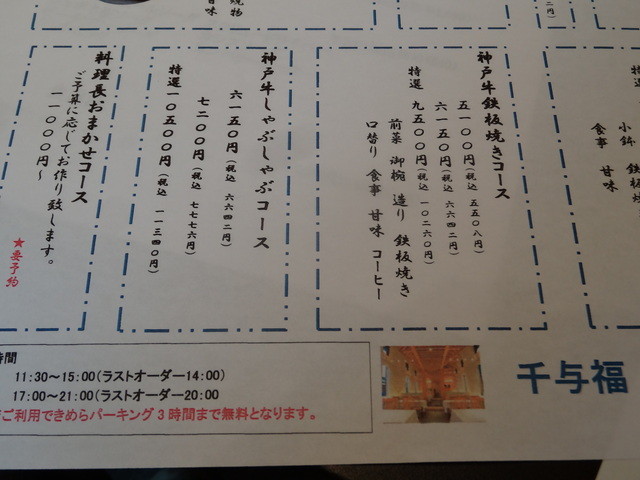 小鉢 鉄板
食事 甘味
焼物
甘味
神戸牛鉄板焼きコース
五一〇〇円(税込 五五〇八円)
六一五〇円(税込 六六四二円)
特選 九五〇〇円(税込 一〇二六〇円)
前菜 御椀 造り 鉄板焼き
口替り 食事 甘味 コーヒー
神戸牛しゃぶしゃぶコース
六一五〇円(税込 六六四二円)
七二〇〇円(税込 七七七六円)
特選 一〇五〇〇円(税込 一一三四〇円)
料理長おまかせコース
ご予算に応じてお作り致します。
一一〇〇〇円～
★要予約
時間
11:30～15:00(ラストオーダー14:00)
17:00～21:00(ラストオーダー20:00
ご利用できめらパーキング3時間まで無料となります。
千与福